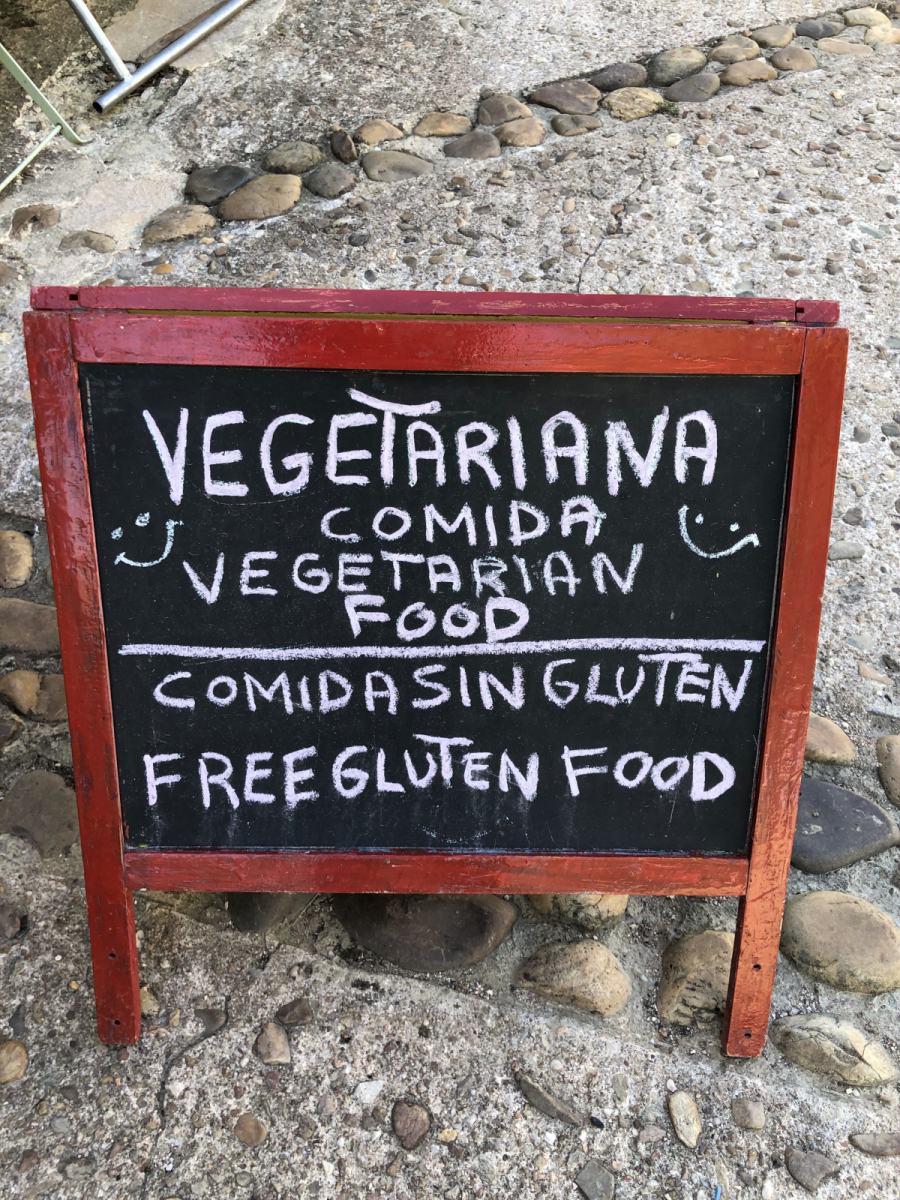 VEGETARIANA
COMIDA
VEGETARIAN
FOOD
COMIDA SIN GLUTEN
FREE GLUTEN FOOD